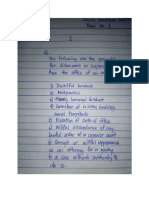 I
The following are the grounds
for disbarment or suspension
from the office of an attorney
1) Deceitful conduct
2) Malpractice
3) Grossly immoral conduct
4) Conviction of a crime involving
moral turpitude
5) Violation of oath of office
6) Willful disobedience of any
lawful order of a superior court
7) Corrupt or willful appearance
as an attorney for a party
to a case without authority to
do so